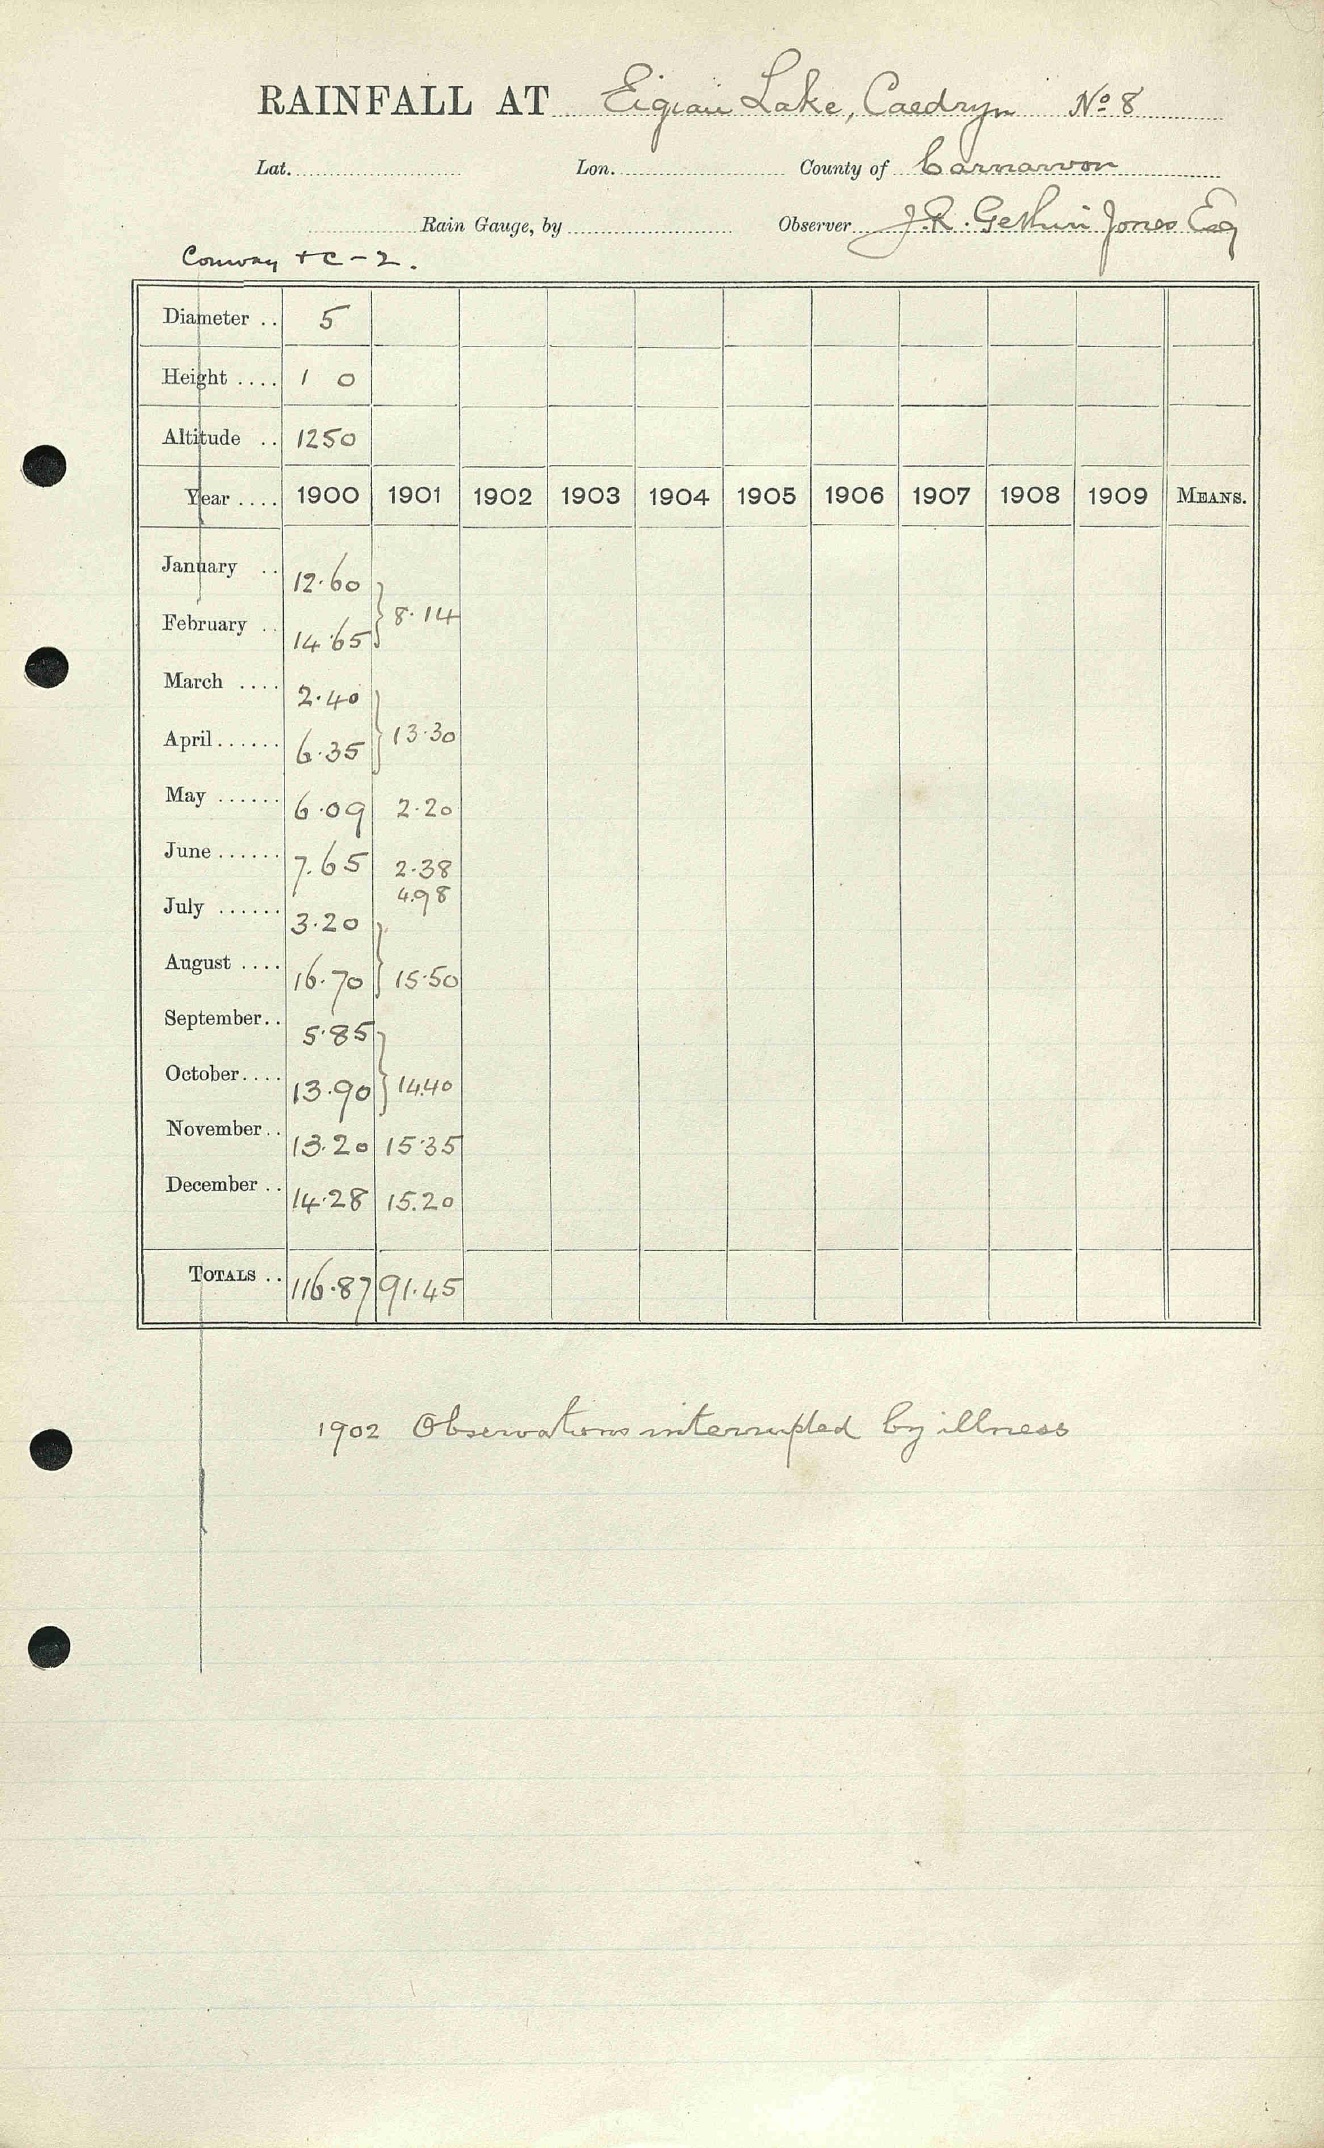 RAINFALL AT Eigiau Lake, Caedryn No 8
Lat. Lon. County of Carnarvon
Rain Gauge, by Observer J.R. Gethin Jones Esq
Conway + C - 2.
Diameter .. 5
Height .... 1 0
Altitude .. 1250
Year .... 1900 1901 1902 1903 1904 1905 1906 1907 1908 1909 MEANS.
January .. 12.60
February .. 14.65 } 8.14
March .... 2.40
April ...... 6.35 } 13.30
May ...... 6.09 2.20
June ...... 7.65 2.38
4.98
July ...... 3.20
August .... 16.70 } 15.50
September.. 5.85
October.... 13.90 } 14.40
November.. 13.20 15.35
December .. 14.28 15.20
TOTALS .. 116.87 91.45
1902 Observations interrupted by illness